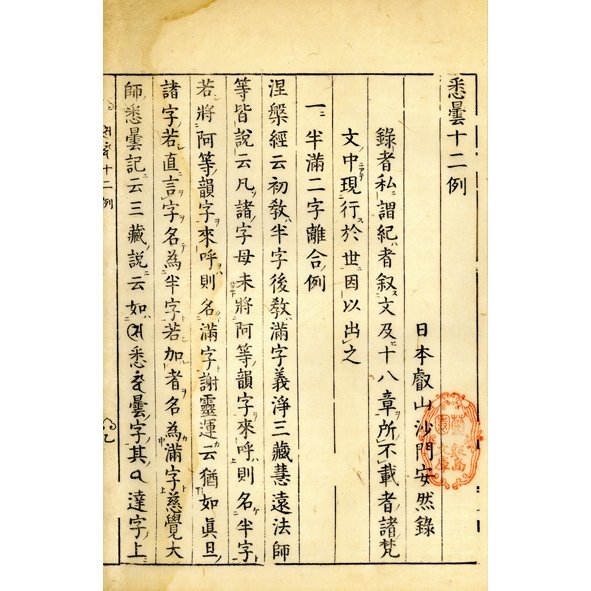 悉曇十二例
日本叡山沙門安然錄
錄者私謂紀者叙文及十八章所不載者諸梵
文中現行於世因以出之
一半滿二字離合例
涅槃經云初教半字後教滿字義淨三藏慧遠法師
等皆說云凡諸字母未將阿等韻字來呼則名半字
若將阿等韻字來呼則名滿字謝靈運云猶如眞旦
諸字若直言字名為半字若加者名為滿字慈覺大
師悉曇記云三藏說云如悉曇字其達字上
十二例